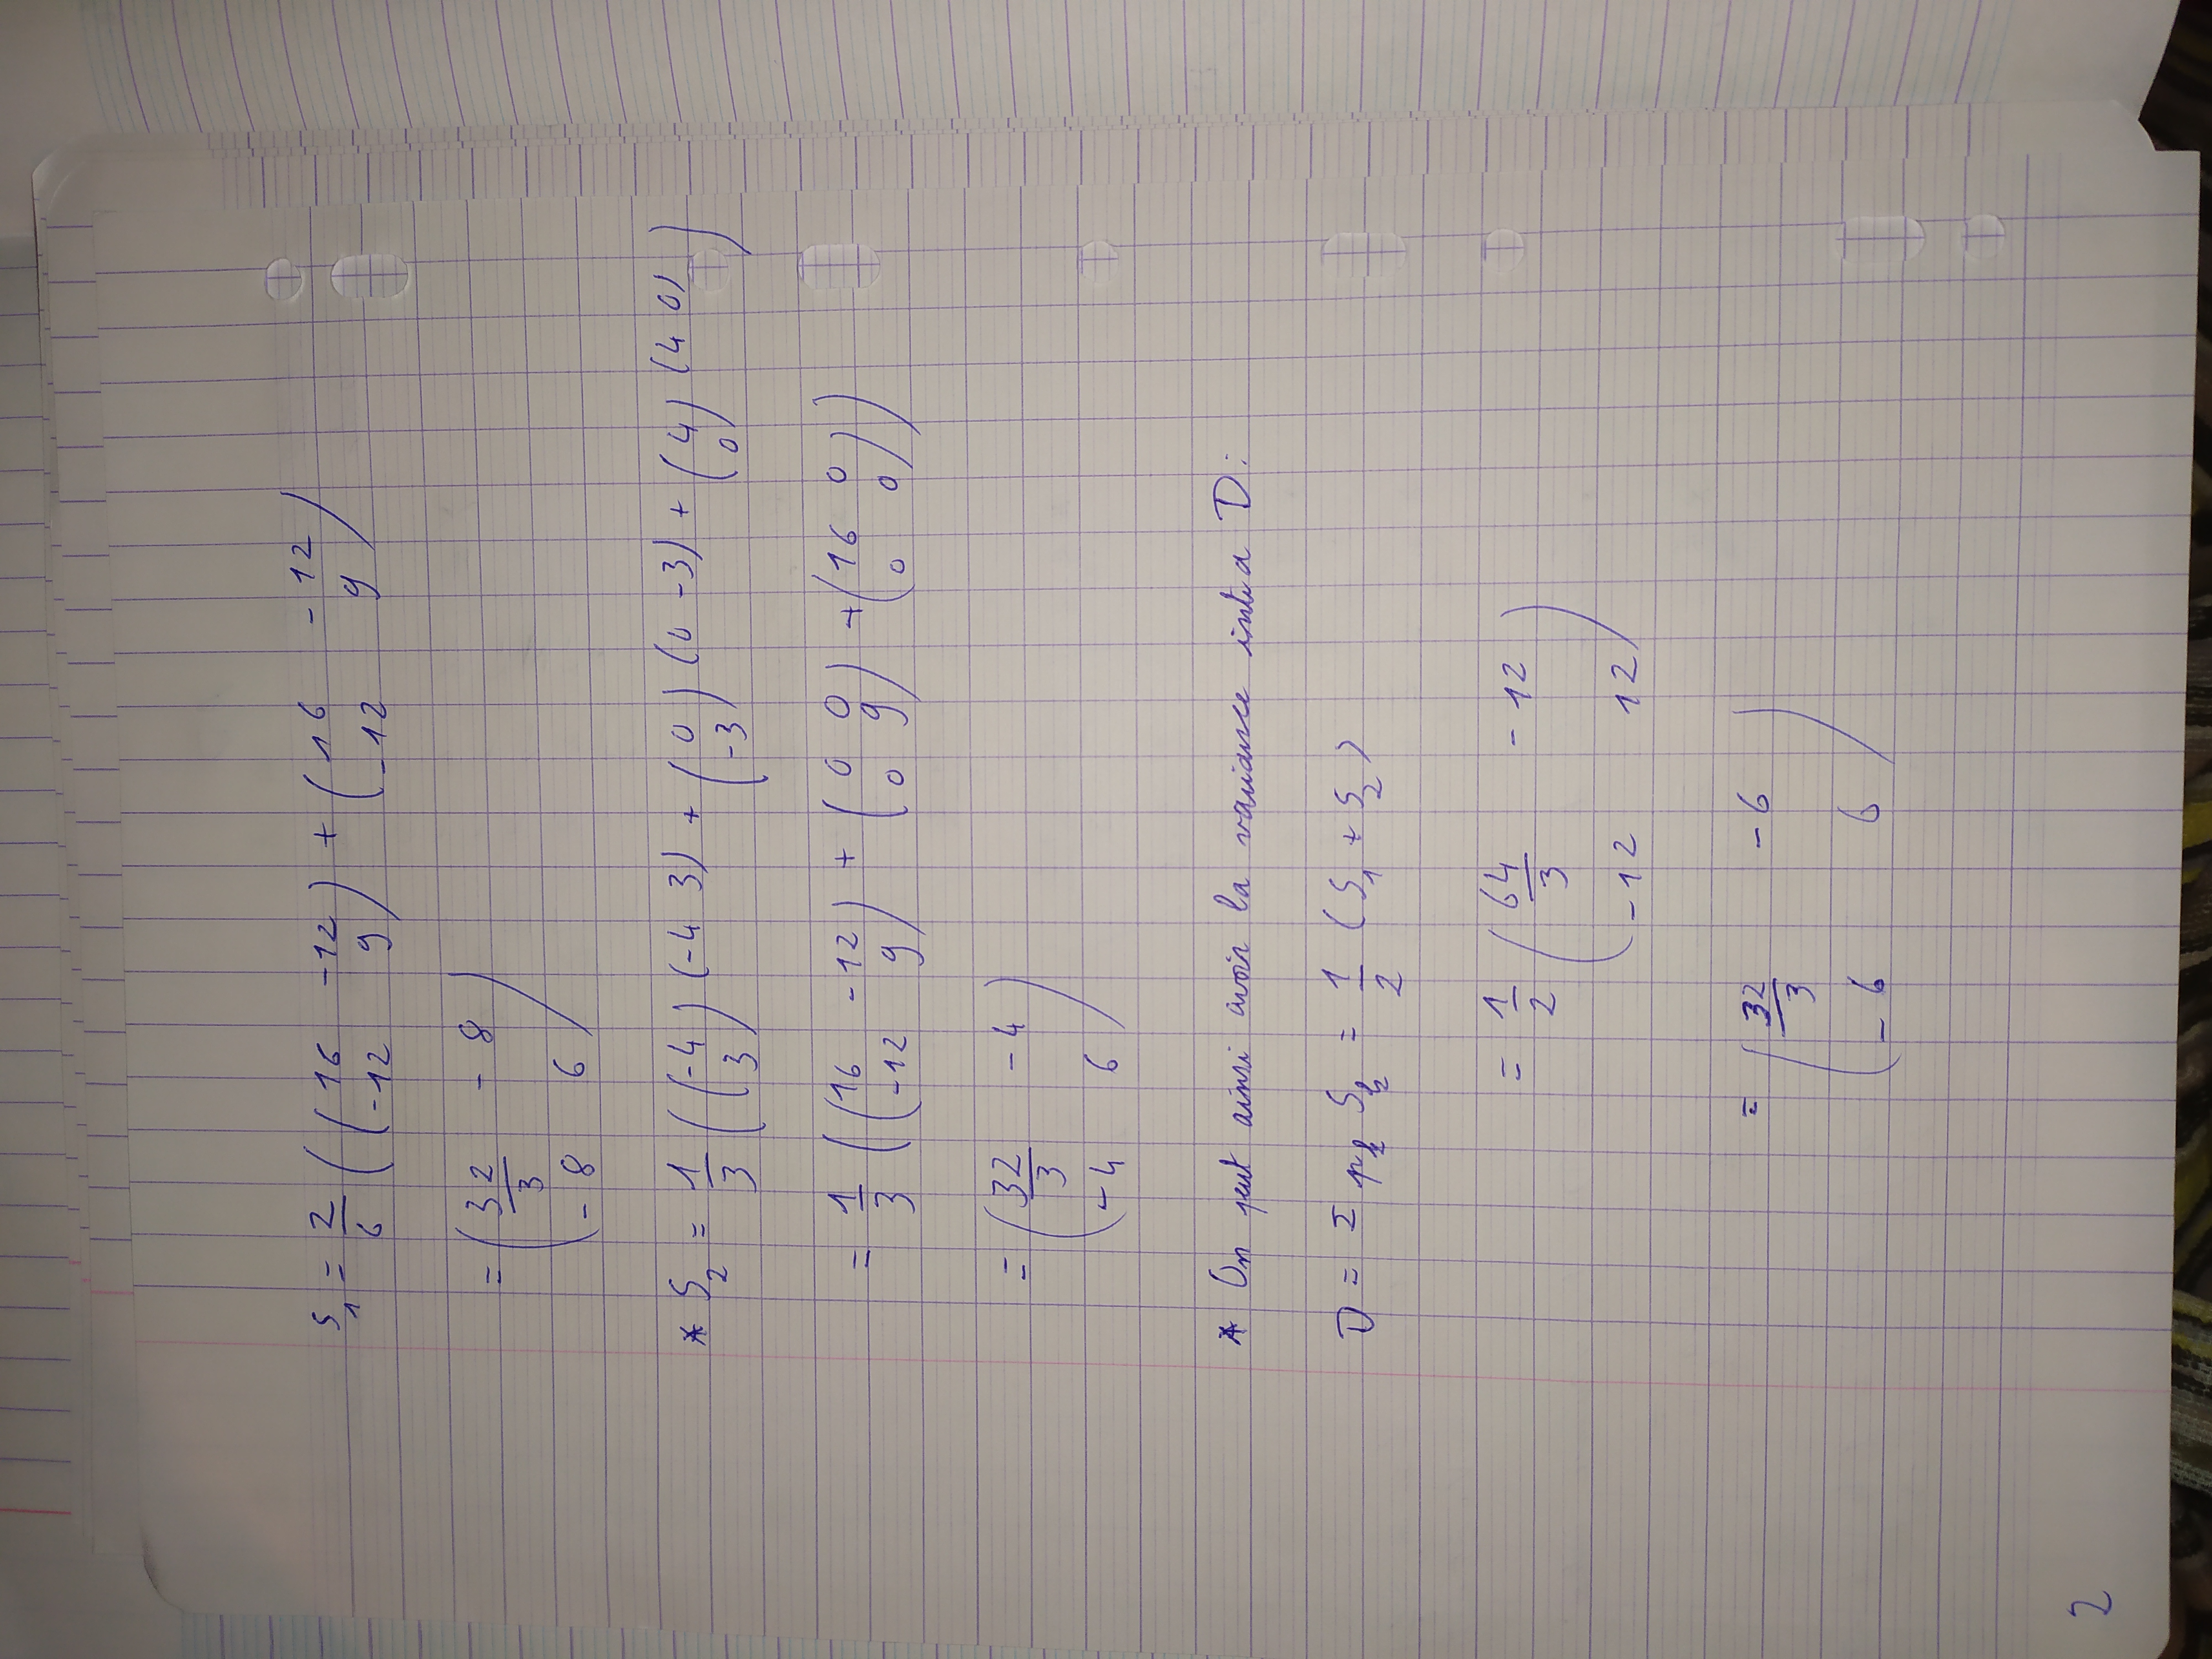 S₁ = 2/6 ( ( 16 -12 ; -12 9 ) + ( 16 -12 ; -12 9 )
= ( 32/3 - 8 ; - 8 6 )
* S₂ = 1/3 ( ( -4 ; 3 ) (-4 3) + ( 0 ; -3 ) (0 -3) + ( 4 ; 0 ) (4 0) )
= 1/3 ( ( 16 -12 ; -12 9 ) + ( 0 0 ; 0 9 ) + ( 16 0 ; 0 0 ) )
= ( 32/3 - 4 ; - 4 6 )
* On peut ainsi avoir la variance intra D :
D = Σ pₖ Sₖ = 1/2 ( S₁ + S₂ )
= 1/2 ( 64/3 - 12 ; - 12 12 )
= ( 32/3 - 6 ; - 6 6 )
2